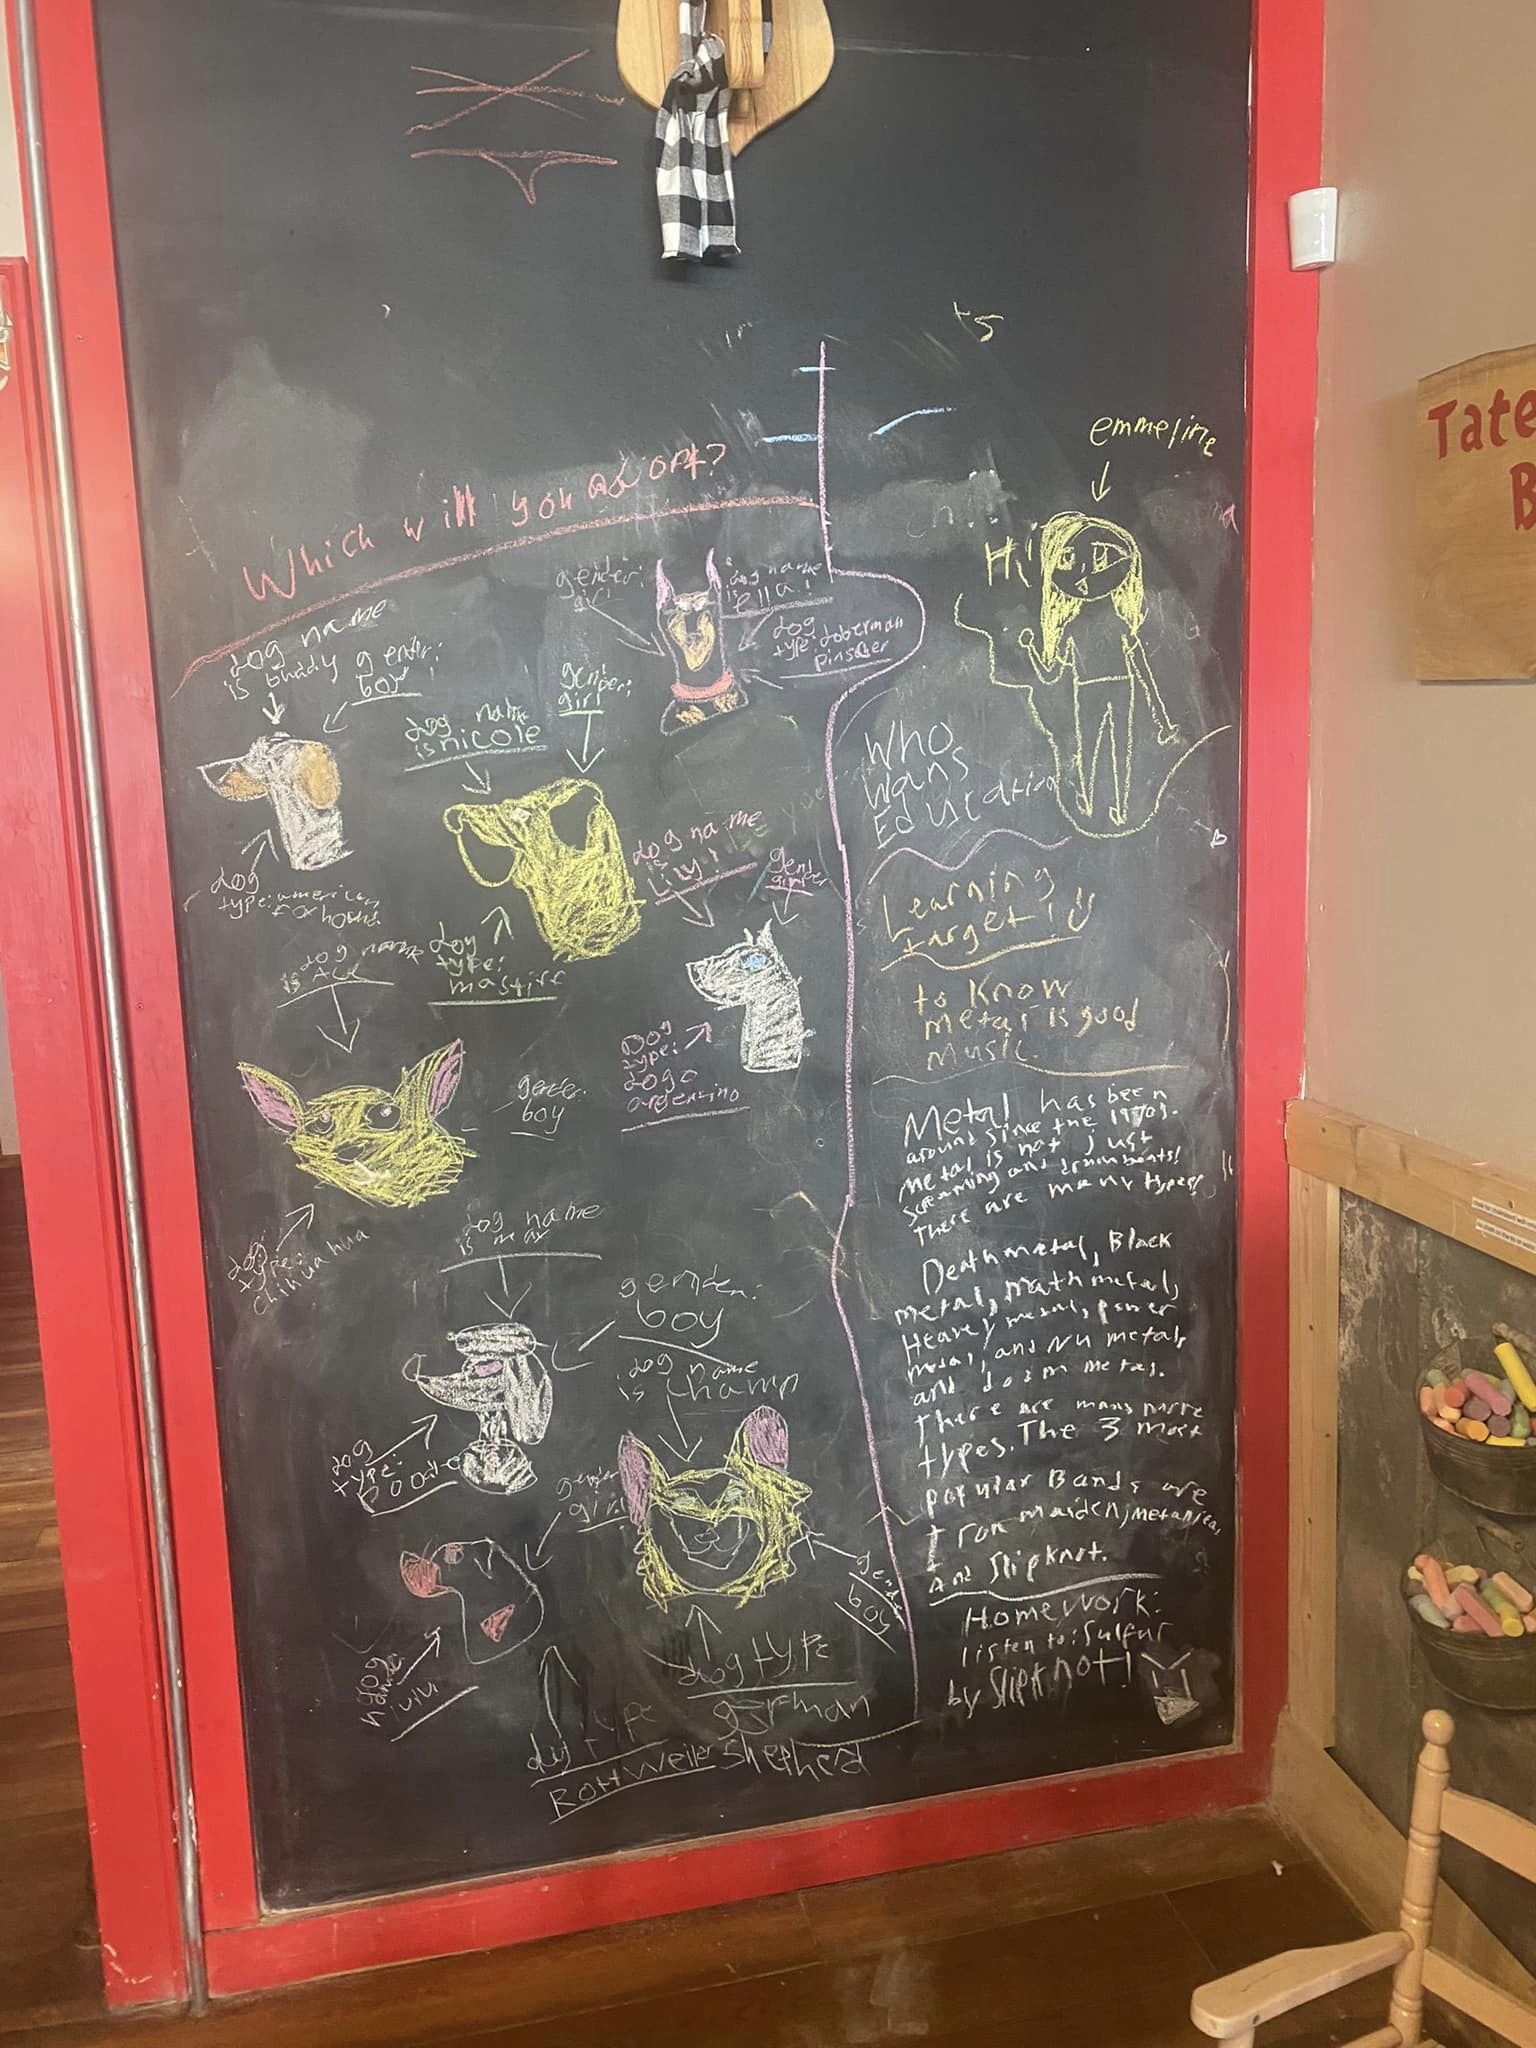 ts
emmeline
Which will you adopt?
Hi
gender:
girl
dog name
is
ella!
dog
type: doberman
pinscher
dog name
is bhaddy
gender:
boy
dog
type: american
foxhound
dog name
is nicole
gender:
girl
dog
type:
mastiff
dog name
is
Lily!
gender
girl
Dog
type:
dogo
argentino
dog name
is Ace
gender:
boy
dog
type:
chihuahua
dog name
is max
gender:
boy
dog
type:
Poodle
dog name
is champ
gender
boy
dog type
german
Shepherd
gender
girl
dog
name:
Luvi
dog type
Rottweiler
Who
wans
Education
Learning
target!
to know
metal is good
music.
Metal has been
around since the 1970s.
metal is not just
screaming and drumbeats!
there are many types!
Death metal, Black
metal, Math metal,
Heavy metal, power
metal, and NU metal,
and doom metal.
there are many more
types. The 3 most
popular Bands are
Iron maiden, metallica,
And Slipknot.
Homework:
listen to: Sulfur
by Slipknot!
Tate
B